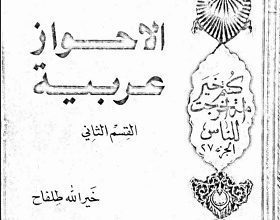 الاحواز
عربية
القسم الثاني
خير الله طلفاح
كنتم خير
أمة أخرجت
للناس
الجزء ٢٧